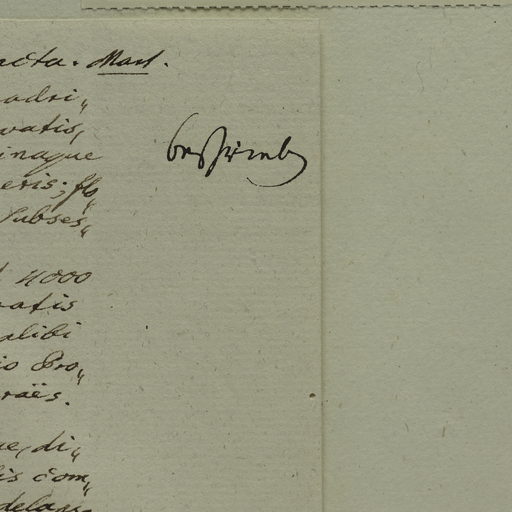 ncta. Mart.
adri„
vatis,
inaque
eris; flo„
subses„
4000
natis
alibi
io Bro„
raës.
ue, di„
is com„